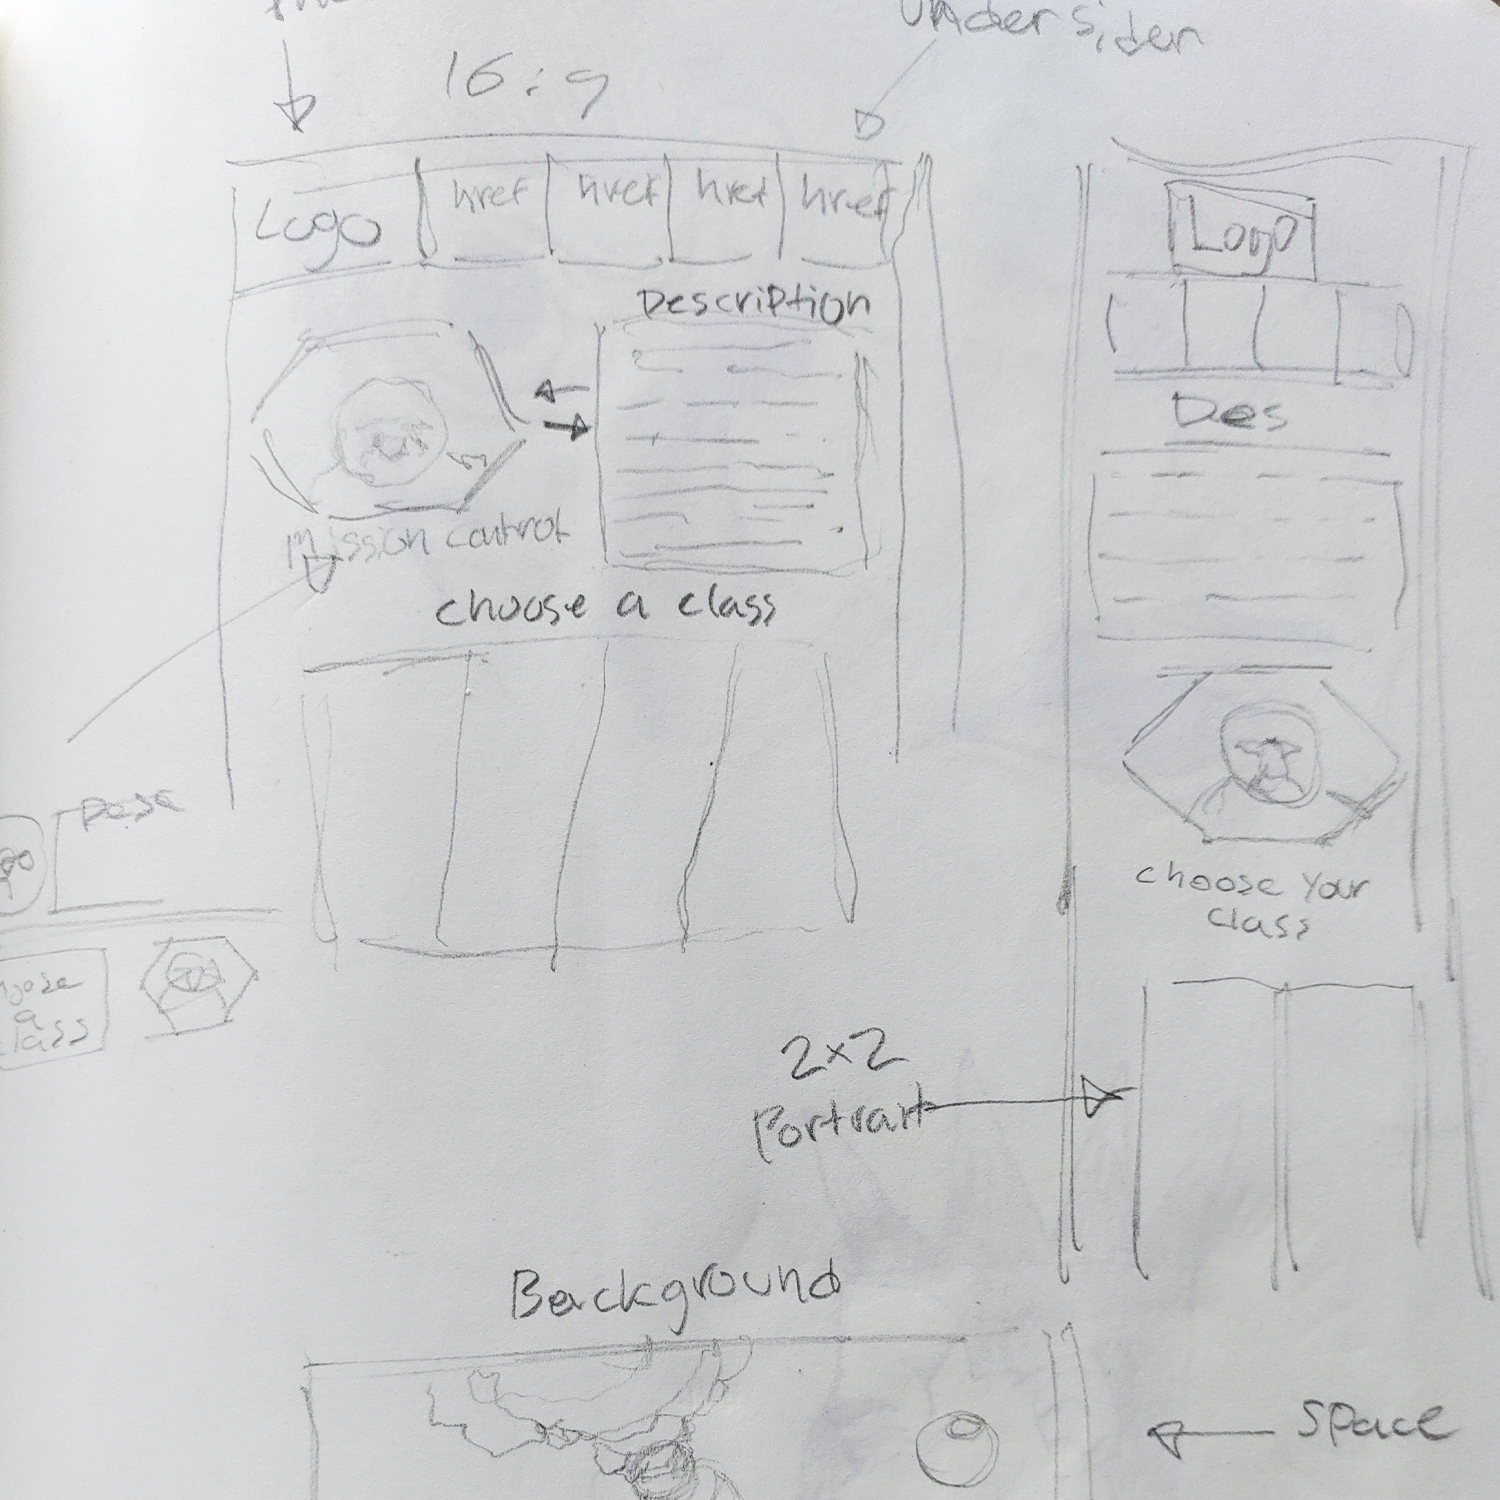 Undersiden
16:9
Logo
href
href
href
href
Description
Mission control
choose a class
Logo
Des
choose Your
class
2x2
Portrait
a
Background
Space